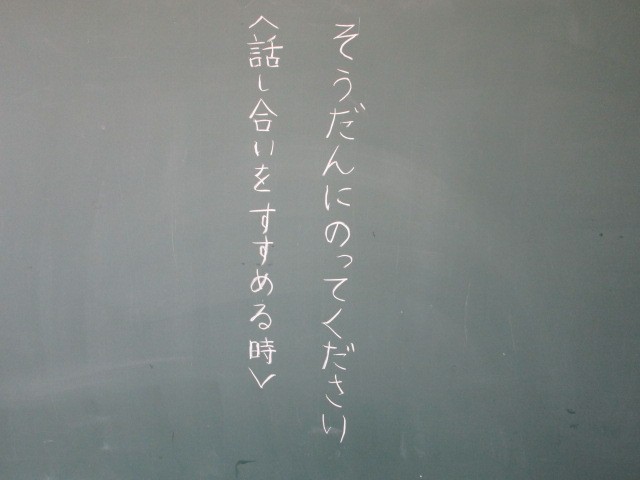 そうだんにのってください
〈話し合いをすすめる時〉